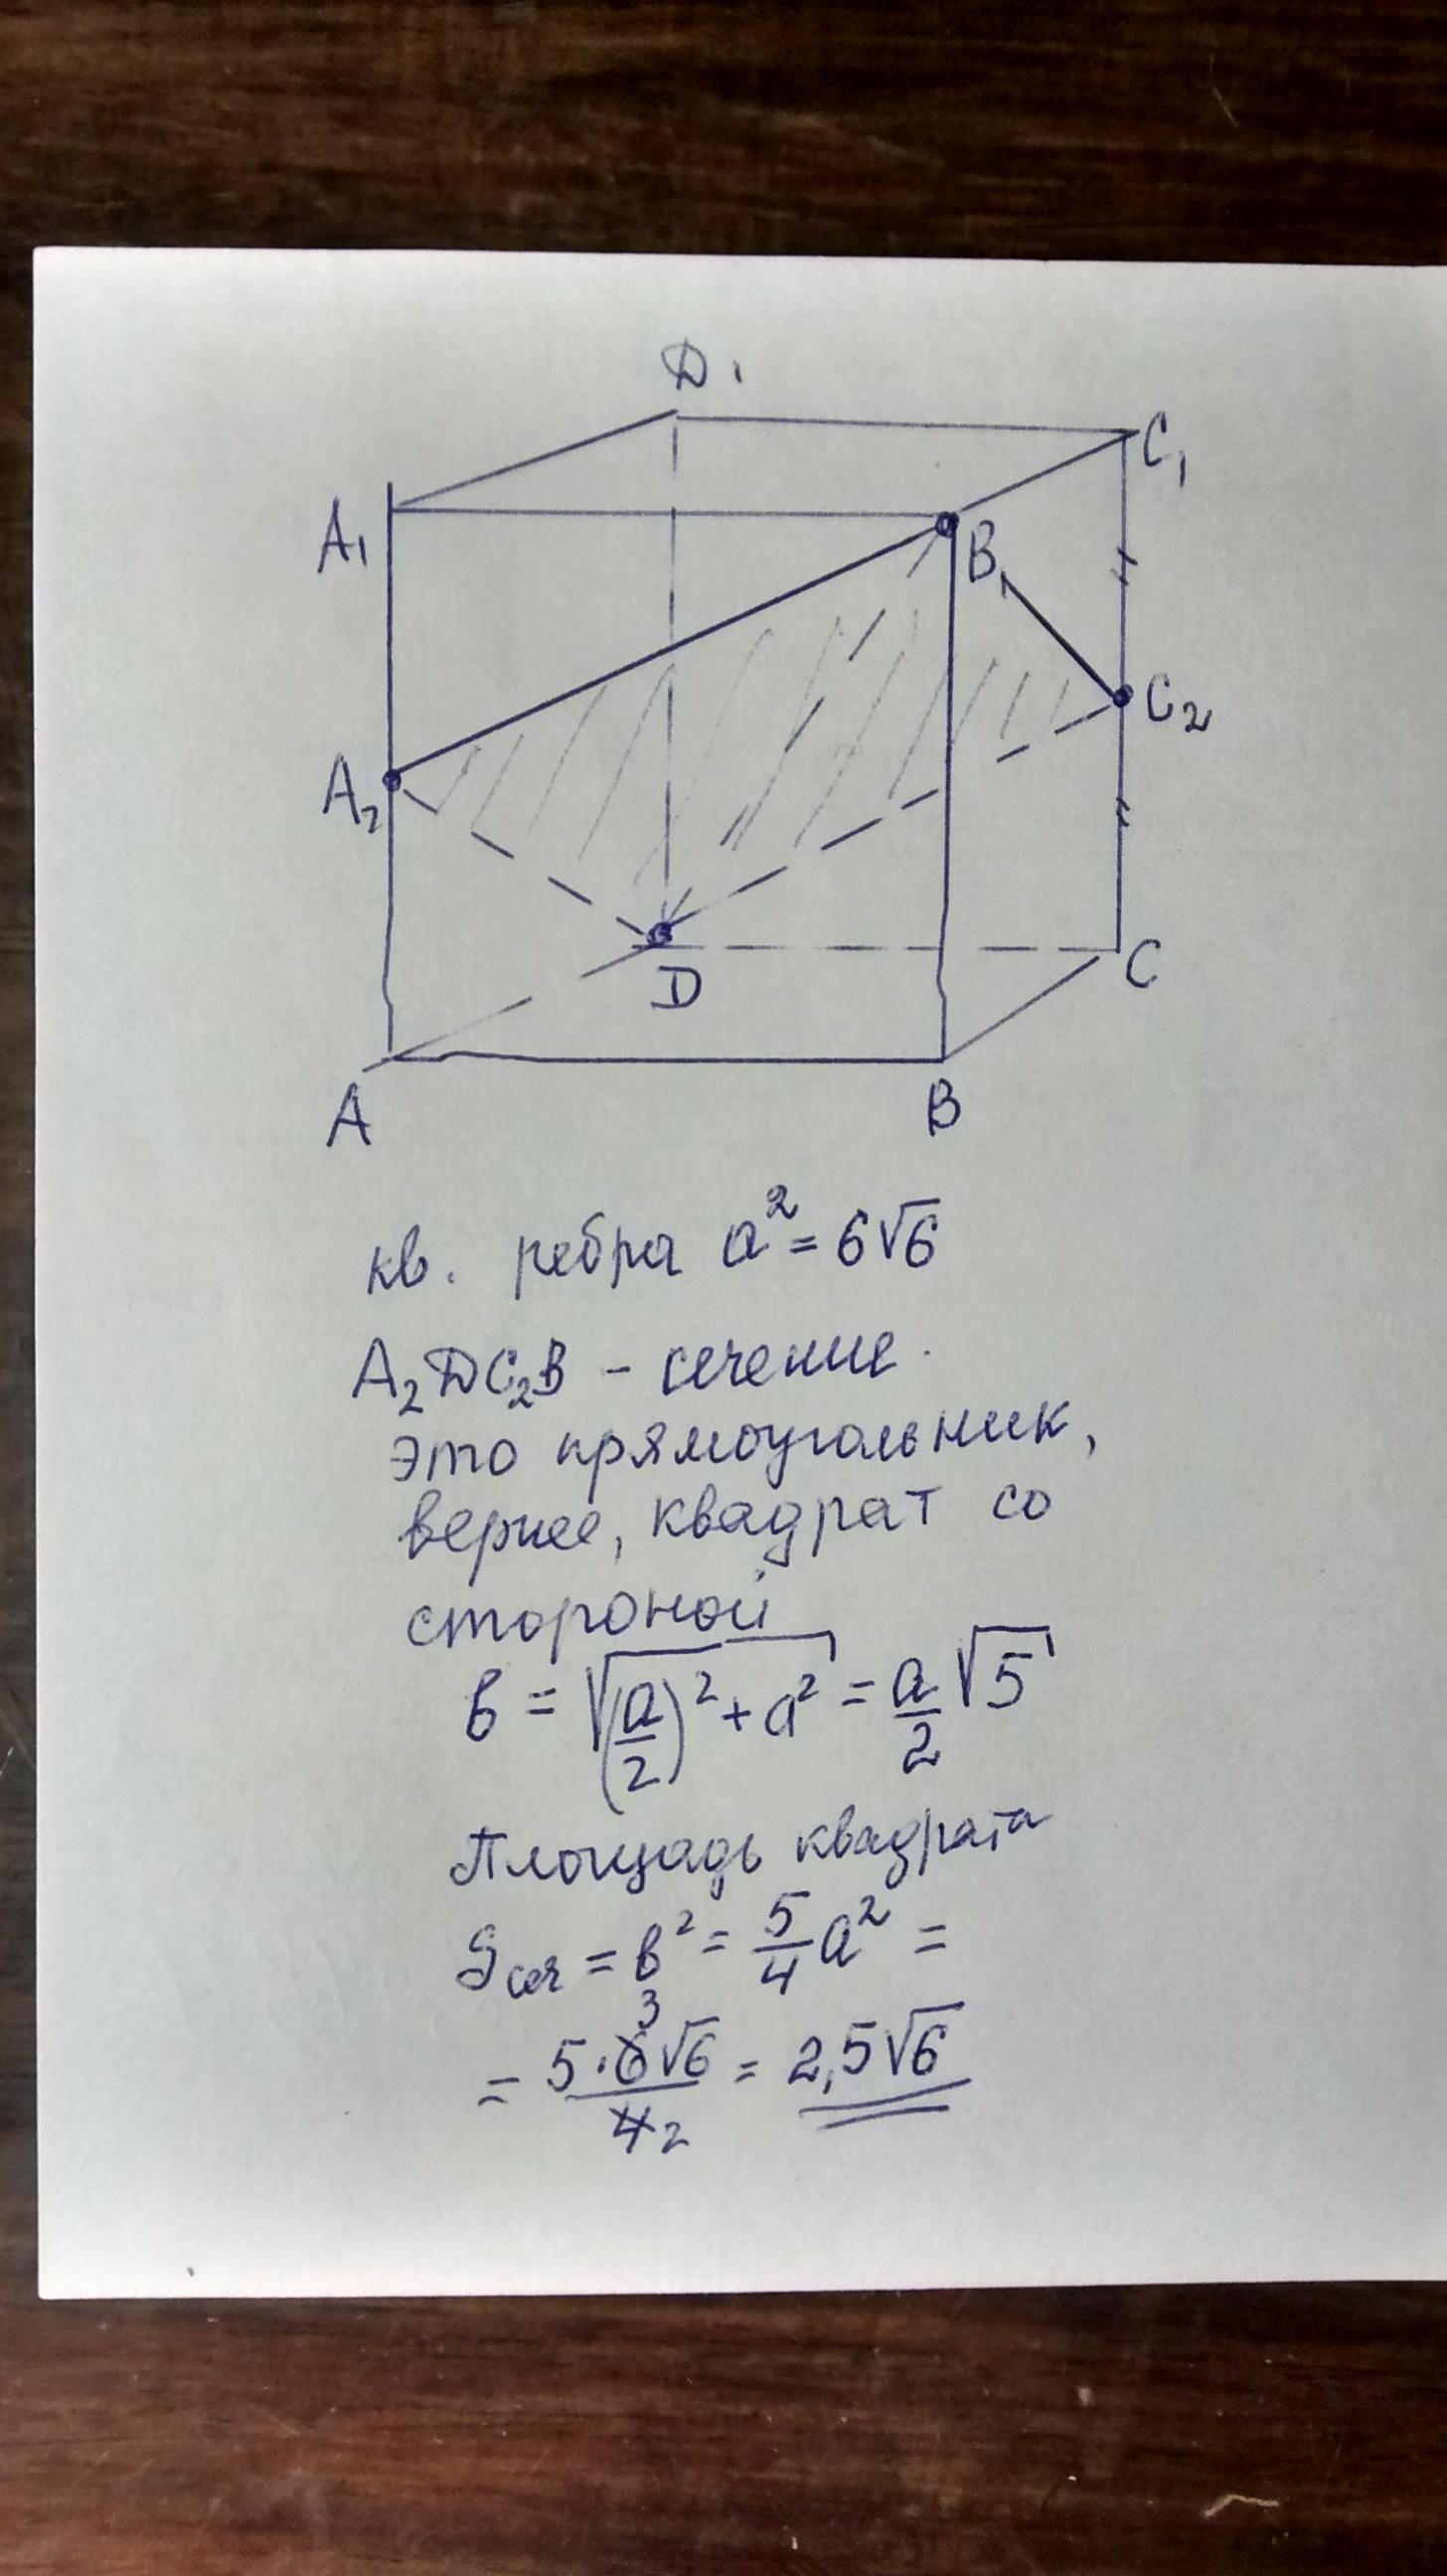 D₁
C₁
A₁
B₁
C₂
A₂
D
C
A
B
кв. ребра a² = 6√6
A₂DC₂B – сечение.
это прямоугольник,
вернее, квадрат со
стороной
b = √((a/2)² + a²) = a/2 √5
Площадь квадрата
Sсеч = b² = 5/4 a² =
= 5·6̸³√6 / 4̸2 = 2,5√6